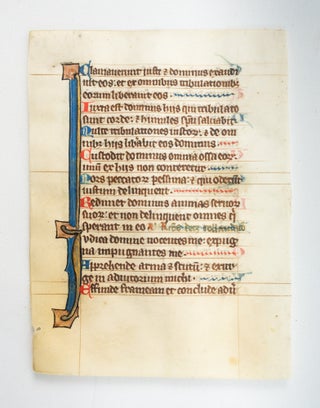 Clamaverunt iusti & dominus exaudi
vit eos: et ex omnibus tribulationib;
eorum liberavit eos.
Iuxta est dominus hijs qui tribulato
sunt corde: & humiles spu salvabit
Multe tribulationes iustor: & de om
nibz hijs libabit eos dominus.
Custodit dominus omnia ossa eor
unum ex hijs non conteretur.
Mors peccator pessima: & qui oderunt
iustum delinquent.
Redimet dominus animas servor
suor: et non delinquent omnes q
sperant in eo
Iudica domine nocentes me: expug
na impugnantes me.
Apprehende arma & scutum: & exur
ge in adiutorium michi.
Effunde frameam et conclude adv